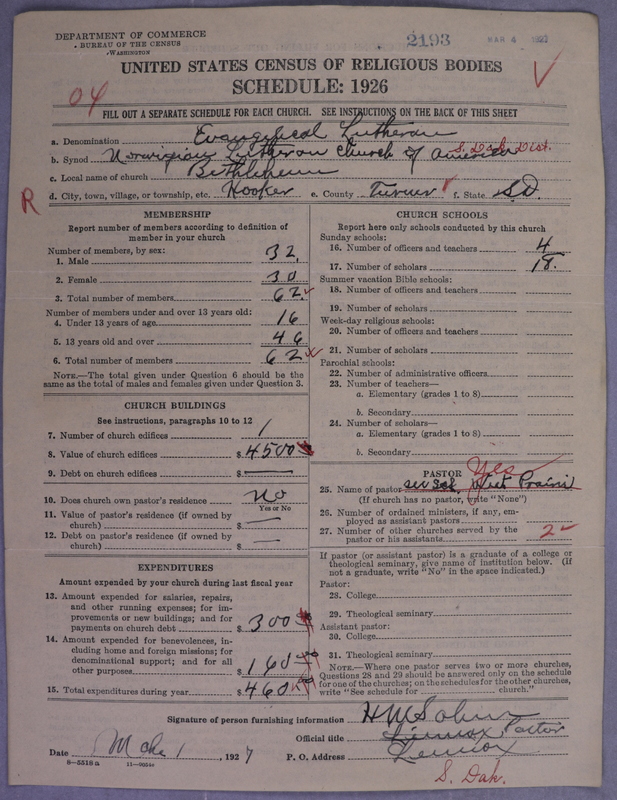 DEPARTMENT OF COMMERCE
BUREAU OF THE CENSUS
WASHINGTON
2193
MAR 4 1927
UNITED STATES CENSUS OF RELIGIOUS BODIES
SCHEDULE: 1926
04
FILL OUT A SEPARATE SCHEDULE FOR EACH CHURCH. SEE INSTRUCTIONS ON THE BACK OF THIS SHEET
a. Denomination Evangelical Lutheran
b. Synod Norwegian Lutheran Church of America S. Dak. Dist.
c. Local name of church Bethlehem
d. City, town, village, or township, etc. Hooker e. County Turner f. State S.D.
R
MEMBERSHIP
Report number of members according to definition of
member in your church
Number of members, by sex:
1. Male 32
2. Female 30
3. Total number of members 62
Number of members under and over 13 years old:
4. Under 13 years of age 16
5. 13 years old and over 46
6. Total number of members 62
NOTE.—The total given under Question 6 should be the
same as the total of males and females given under Question 3.
CHURCH BUILDINGS
See instructions, paragraphs 10 to 12
7. Number of church edifices 1
8. Value of church edifices $ 4500
9. Debt on church edifices $ —
10. Does church own pastor's residence No
Yes or No
11. Value of pastor's residence (if owned by
church) $ —
12. Debt on pastor's residence (if owned by
church) $ —
EXPENDITURES
Amount expended by your church during last fiscal year
13. Amount expended for salaries, repairs,
and other running expenses; for im-
provements or new buildings; and for
payments on church debt $ 300
14. Amount expended for benevolences, in-
cluding home and foreign missions; for
denominational support; and for all
other purposes $ 160
15. Total expenditures during year $ 460
CHURCH SCHOOLS
Report here only schools conducted by this church
Sunday schools:
16. Number of officers and teachers 4
17. Number of scholars 18.
Summer vacation Bible schools:
18. Number of officers and teachers
19. Number of scholars
Week-day religious schools:
20. Number of officers and teachers
21. Number of scholars
Parochial schools:
22. Number of administrative officers
23. Number of teachers—
a. Elementary (grades 1 to 8)
b. Secondary
24. Number of scholars—
a. Elementary (grades 1 to 8)
b. Secondary
PASTOR Yes
25. Name of pastor see Sch. Prairie
(If church has no pastor, write "None")
26. Number of ordained ministers, if any, em-
ployed as assistant pastors
27. Number of other churches served by the
pastor or his assistants 2
If pastor (or assistant pastor) is a graduate of a college or
theological seminary, give name of institution below. (If
not a graduate, write "No" in the space indicated.)
Pastor:
28. College
29. Theological seminary
Assistant pastor:
30. College
31. Theological seminary
NOTE.—Where one pastor serves two or more churches,
Questions 28 and 29 should be answered only on the schedule
for one of the churches; on the schedules for the other churches,
write "See schedule for church."
Signature of person furnishing information
Official title Lennox Pastor
Date Mch 1, 1927 P. O. Address Lennox
8—5518a 11—9554
S. Dak.